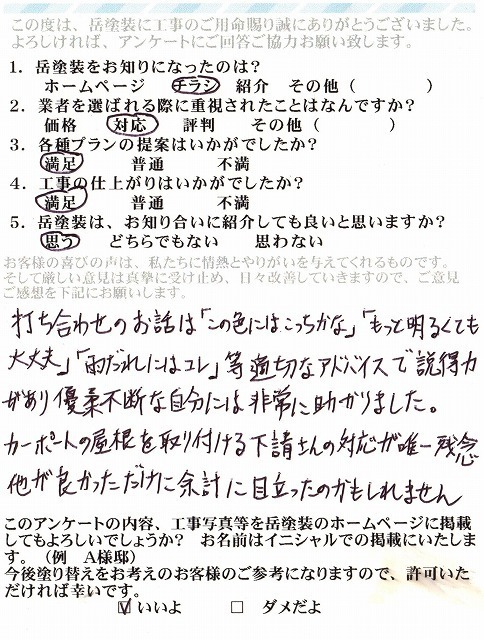 この度は、岳塗装に工事のご用命賜り誠にありがとうございました。
よろしければ、アンケートにご回答ご協力お願い致します。
1. 岳塗装をお知りになったのは？
ホームページ　チラシ　紹介　その他（　　　　）
2. 業者を選ばれる際に重視されたことはなんですか？
価格　対応　評判　その他（　　　　）
3. 各種プランの提案はいかがでしたか？
満足　普通　不満
4. 工事の仕上がりはいかがでしたか？
満足　普通　不満
5. 岳塗装は、お知り合いに紹介しても良いと思いますか？
思う　どちらでもない　思わない
お客様の喜びの声は、私たちに情熱とやりがいを与えてくれるものです。
そして厳しい意見は真摯に受け止め、日々改善していきますので、ご意見
ご感想を下記にお願いします。
打ち合わせのお話は「この色にはこっちかな」「もっと明るくても
大丈夫」「雨だれにはコレ」等適切なアドバイスで説得力
があり優柔不断な自分には非常に助かりました。
カーポートの屋根を取り付ける下請さんの対応が唯一残念
他が良かっただけに余計に目立ったのかもしれません
このアンケートの内容、工事写真等を岳塗装のホームページに掲載
してもよろしいでしょうか？　お名前はイニシャルでの掲載にいたしま
す。（例　A様邸）
今後塗り替えをお考えのお客様のご参考になりますので、許可いた
だければ幸いです。
☑ いいよ　□ ダメだよ